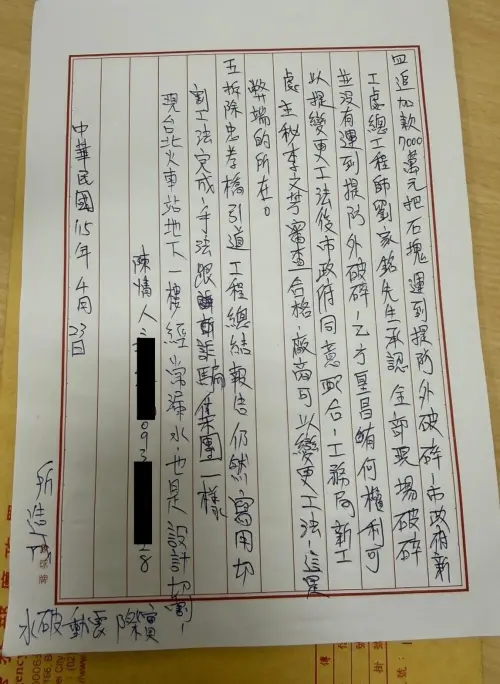 四追加款7000萬元把石塊運到提防外破碎,市政府新
工處總工程師劉家銘先生承認全部現場破碎
並沒有運到提防外破碎,乙方皇昌有何權利可
以提變更工法後市政府同意配合,工務局新工
處主秘李文芳審查合格,廠商可以變更工法,這是
弊端的所在。
五拆除忠孝橋引道工程總結報告仍然寫用切
割工法完成,手法跟詐騙集團一樣
現台北火車站地下一樓經常漏水也是設計切割,
實際震動破水
所造成
陳情人: 093 8
中華民國115年4月23日